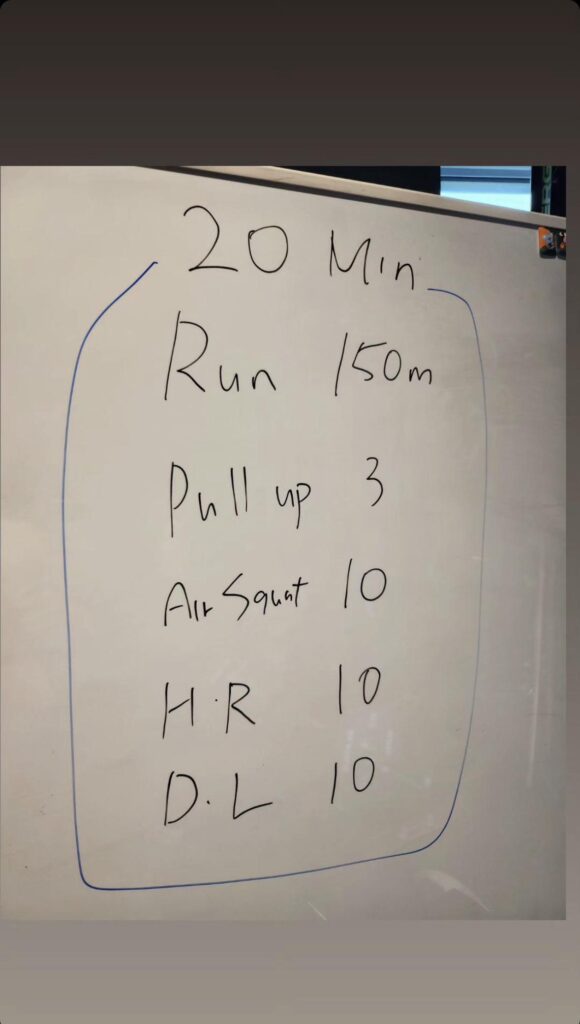 20 Min
Run 150m
Pull up 3
Air Squat 10
H.R 10
D.L 10